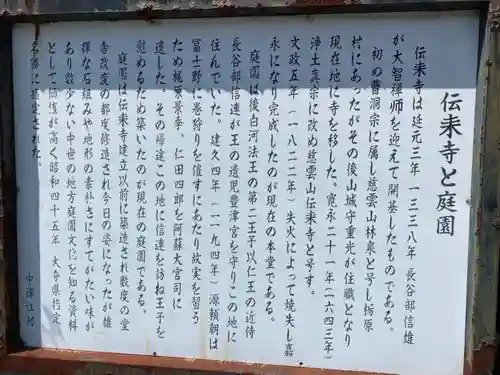 伝来寺と庭園
伝来寺は延元三年(一三三八年)長谷部信雄
が大智禅師を迎えて開基したものである。
初め曹洞宗に属し慈雲山林泉と号し栃原
村にあったがその後山城守重光が住職となり
現在地に寺を移した。寛永二十一年(一六四三年)
浄土真宗に改め慈雲山伝来寺と号す。
文政五年(一八二二年)失火によって焼失し嘉
永になり完成したのが現在の本堂である。
庭園は後白河法王の第二王子以仁王の近侍
長谷部信連が王の遺児豊津宮を守りこの地に
住んでいた。建久四年(一一九四年)源頼朝は
富士野に巻狩りを催すにあたり故実を習う
ため梶原景季 仁田四郎を阿蘇大宮司に
遣した。その帰途この地に信連を訪ね王子を
慰めるため築いたのが現在の庭園である。
庭園は伝来寺建立以前に築造され数度の堂
舎改度の都度修造され今日の姿になったが雄
揮な石組みや地形の素朴さにすてがたい味が
あり数少ない中世の地方庭園文化を知る資料
として価値が高く昭和四十五年 大分県指定
名勝に指定された。
中津江村